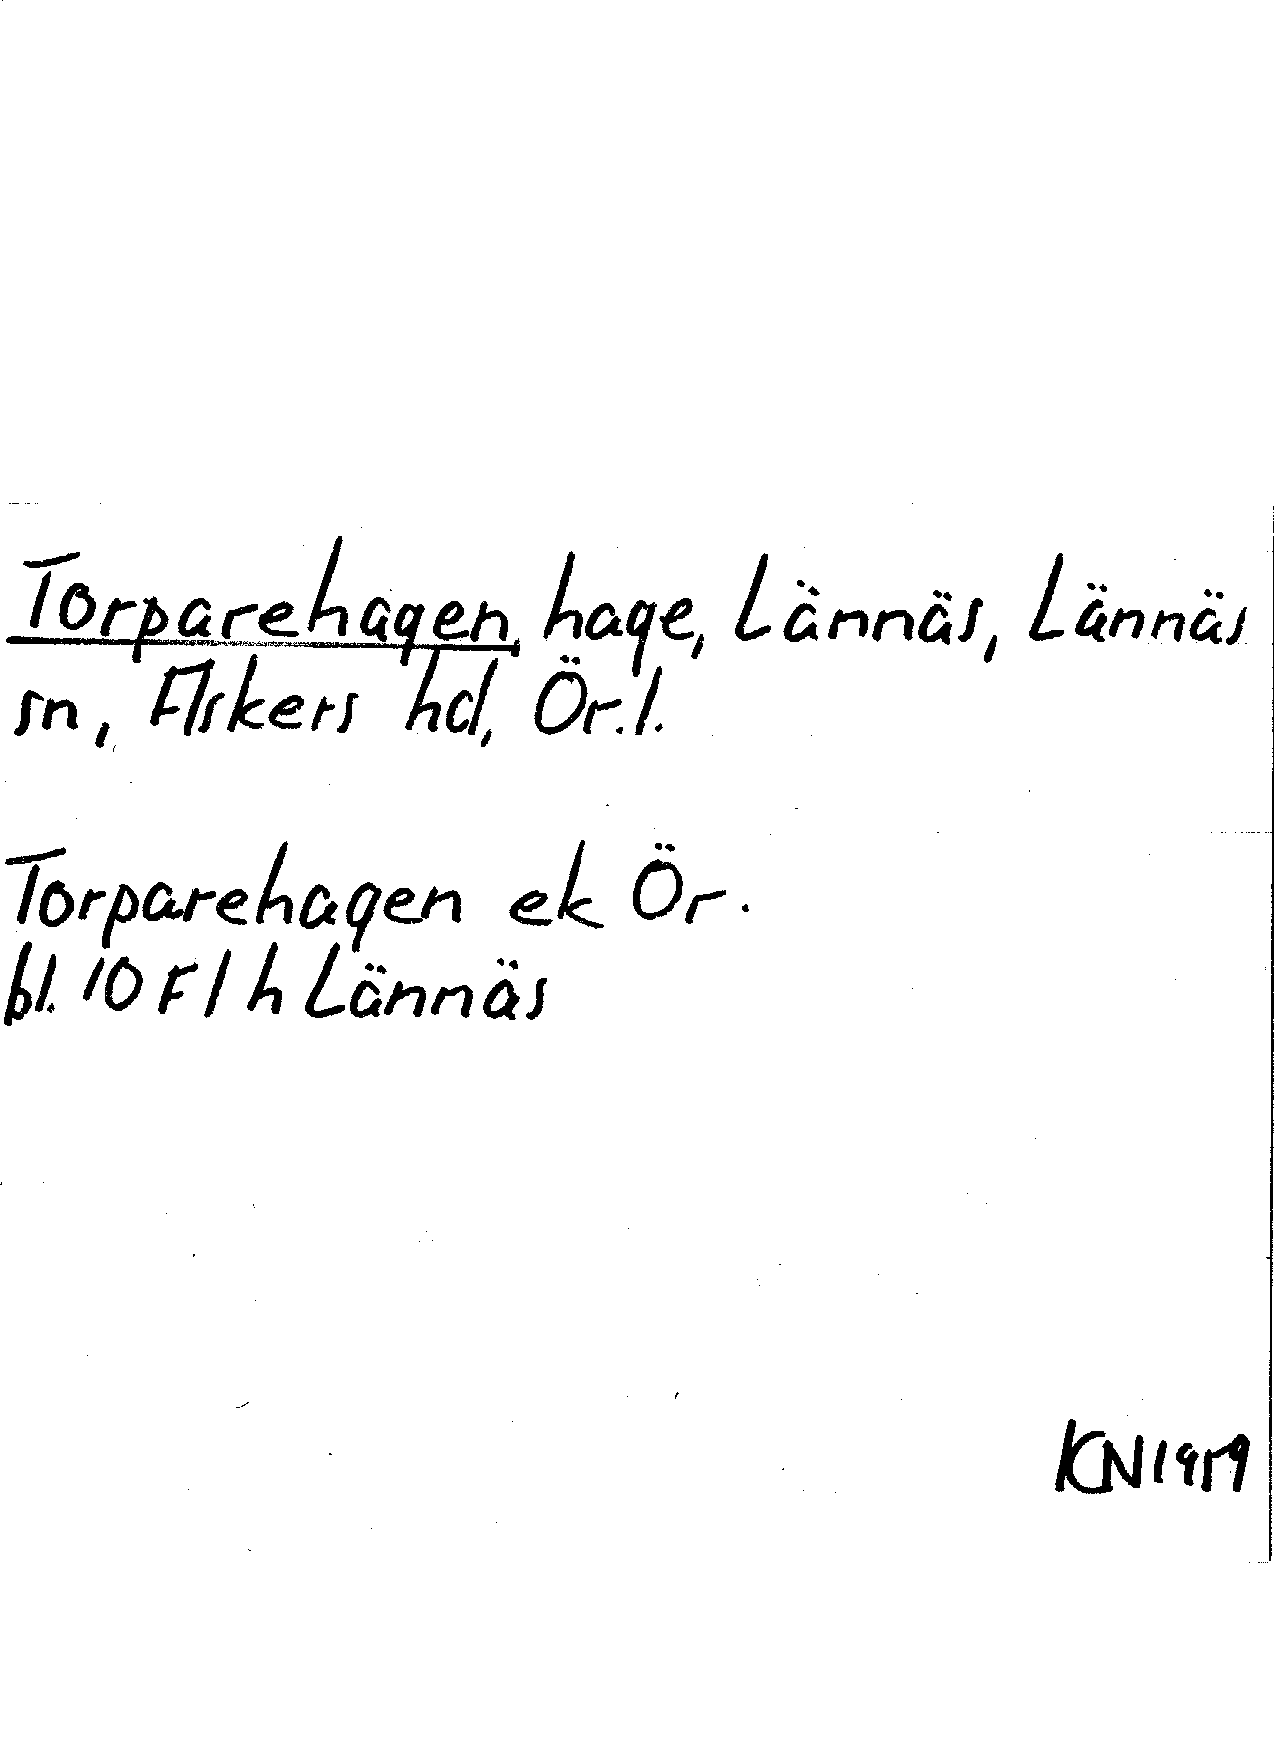 Torparehagen, hage, Lännäs, Lännäs
sn, Askers hd, Ör.l.
Torparehagen ek Ör.
bl. 10 F 1 h Lännäs
KN 1959